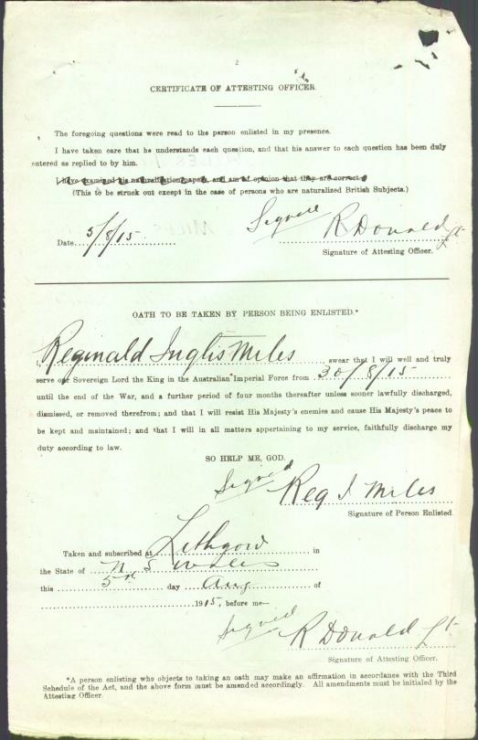 2
CERTIFICATE OF ATTESTING OFFICER
The foregoing questions were read to the person enlisted in my presence.
I have taken care that he understands each question, and that his answer to each question has been duly
entered as replied to by him.
I have examined his naturalization papers, and am of opinion that they are correct.
(This to be struck out except in the case of persons who are naturalized British Subjects.)
Date 5/8/15 Signed R Donald Lt
Signature of Attesting Officer.
OATH TO BE TAKEN BY PERSON BEING ENLISTED.*
Reginald Inglis Miles swear that I will well and truly
serve our Sovereign Lord the King in the Australian Imperial Force from 30/8/15
until the end of the War, and a further period of four months thereafter unless sooner lawfully discharged,
dismissed, or removed therefrom; and that I will resist His Majesty's enemies and cause His Majesty's peace to
be kept and maintained; and that I will in all matters appertaining to my service, faithfully discharge my
duty according to law.
SO HELP ME, GOD.
Signed Reg I Miles
Signature of Person Enlisted
Taken and subscribed at Lithgow in
the State of N S Wales
this 5th day Aug of
1915, before me—
Signed R Donald Lt
Signature of Attesting Officer.
*A person enlisting who objects to taking an oath may make an affirmation in accordance with the Third
Schedule of the Act, and the above form must be amended accordingly. All amendments must be initialed by the
Attesting Officer